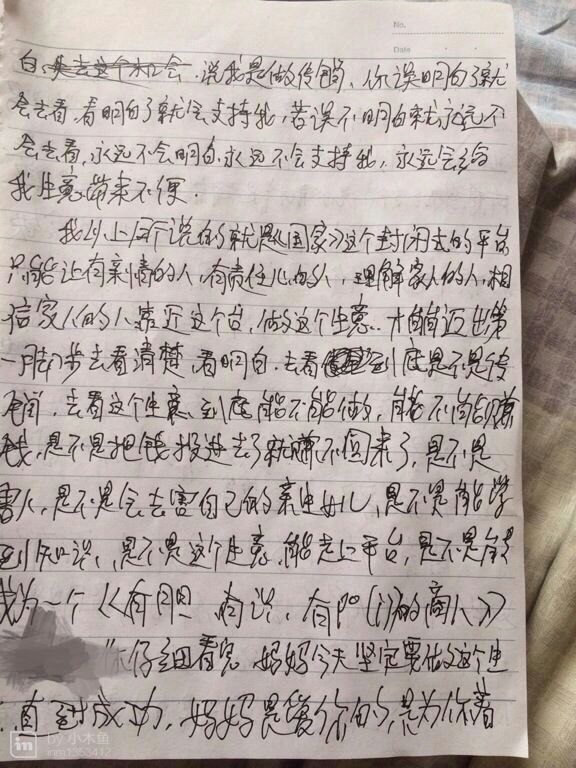 No.
Date
白，失去这个机会。说我是做传销，你误明白了就
会去看，看明白了就会支持我，若误不明白就永远不
会去看，永远不会明白，永远不会支持我，永远会给
我生意带来不便.
我以上所说的就是《国家》这个封闭式的平台
只能让有亲情的人，有责任心的人，理解家人的人，相
信家人的人靠近这个台，做这个生意. 才能迈出第
一脚步去看清楚，看明白，去看到底是不是传
销，去看这个生意到底能不能做，能不能赚
钱，是不是把钱投进去了就赚不回来了，是不是
害人，是不是会去害自己的亲生女儿，是不是能学
到知识，是不是这个生意能走上平台，是不是能
成为一个《有胆 有识，有的商人》
你仔细看完 妈妈今天坚定要做这个生
直到成功，妈妈是爱你的，是为你着
in by 小木鱼
inm1353412